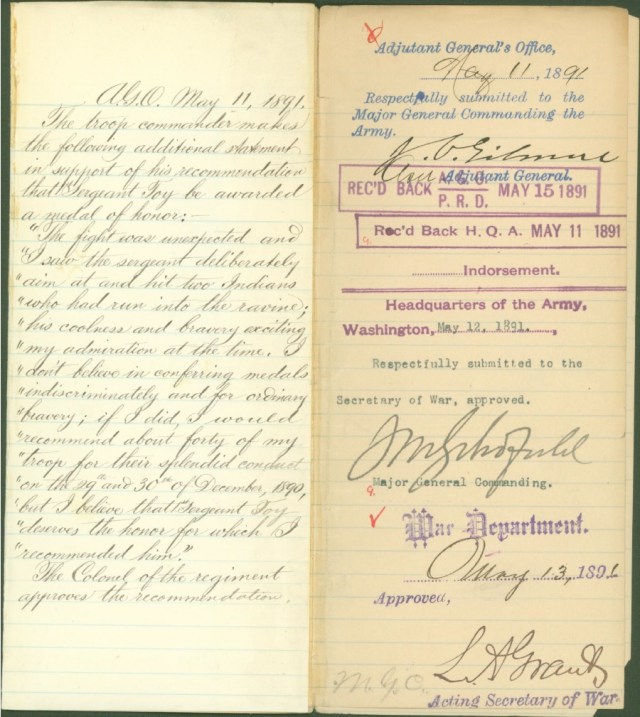 A.G.O. May 11, 1891.
The troop commander makes
the following additional statement
in support of his recommendation
that Sergeant Toy be awarded
a medal of honor:—
"The fight was unexpected and
"I saw the sergeant deliberately
"aim at and hit two Indians
"who had run into the ravine;
"his coolness and bravery exciting
"my admiration at the time. I
"don't believe in conferring medals
"indiscriminately and for ordinary
"bravery; if I did, I would
"recommend about forty of my
"troop for their splendid conduct
"on the 29th and 30th of December, 1890,
"but I believe that Sergeant Toy
"deserves the honor for which I
"recommended him."
The Colonel of the regiment
approves the recommendation.
Adjutant General's Office,
May 11, 1891
Respectfully submitted to the
Major General Commanding the
Army.
Adjutant General.
REC'D BACK P. R. D. MAY 15 1891
Rec'd Back H. Q. A. MAY 11 1891
Indorsement.
Headquarters of the Army,
Washington, May 12, 1891.
Respectfully submitted to the
Secretary of War, approved.
J M Schofield
Major General Commanding.
War Department.
May 13, 1891
Approved,
L. A. Grant
Acting Secretary of War.